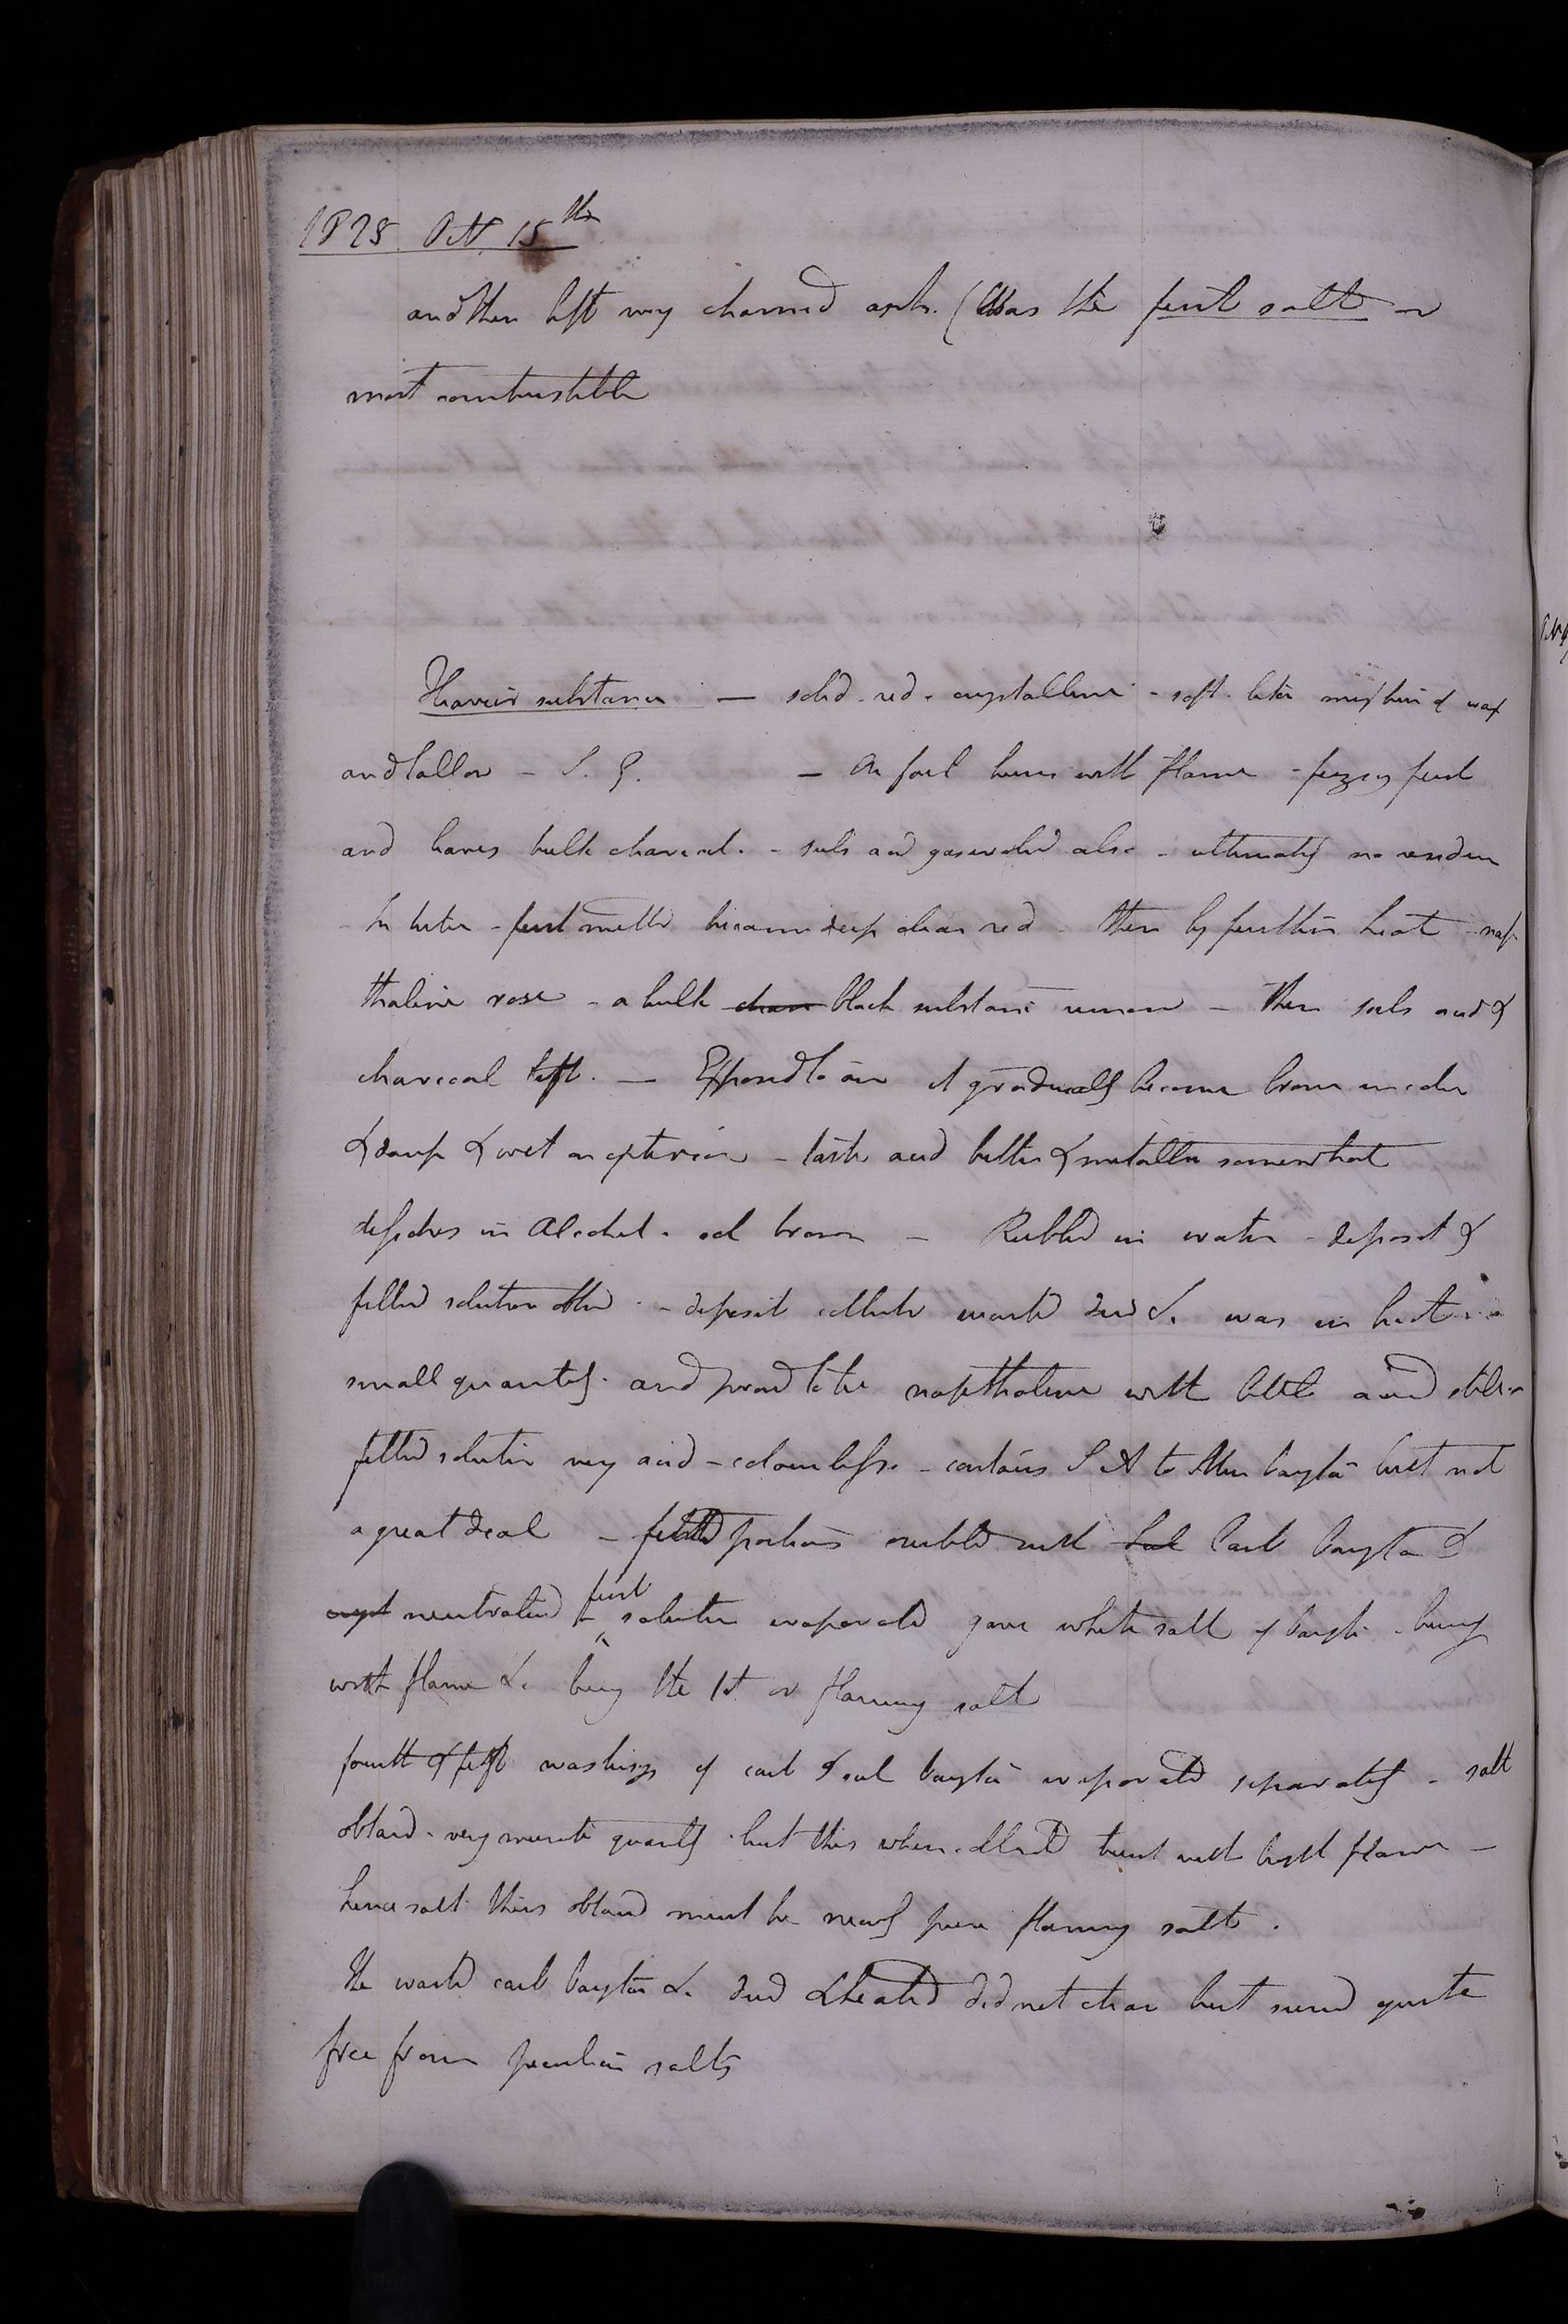 1825. Oct. 15th
and then left very charred ash. (Was the first salt or
most combustible
Heavier substance — solid. red. crystalline - soft. like mixture of wax
and tallow - S. G. — On foil burns with flame - fuzing first
and leaves bulk charcoal. - sul acid gas evolved also - ultimately no residue
In tube - first melted became deep clear red - then by further heat - nap
thaline rose - a bulk char black substance remained - then sul acid &
charcoal left. — Exposed to air it gradually became brown in color
& damp & wet on exterior - taste acid bitter & metallic somewhat
dissolves in Alcohol. sol brown - Rubbed in water - deposit &
filtd solution obtd. - deposit collected washed dried &c was in
small quantity. and proved to be napthaline with little acid still
filtd solution very acid - colourless. - contains S A to Mur baryta but not
a great deal - filtd portions rubbed with Sul Carb baryta &
neutralized - first solution evaporated gave white salt of baryta - burng
with flame &c being the 1st or flaming salt
fourth & fifth washings of carb & sul baryta evaporated separately - salt
obtaind. very minute quantity. but this when collected burnt with bright flame -
hence salt thus obtaind must be nearly pure flaming salt.
The washd carb baryta &c dried & heated did not char but seemd quite
free from peculiar salts